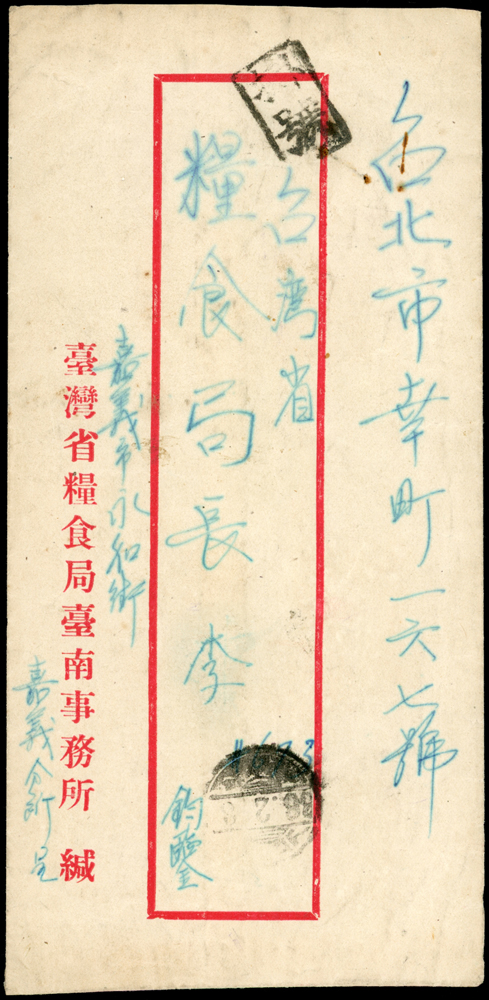 台北市幸町一六七號
台湾省
糧食局長 李
鈞鑒
嘉義市永和街
臺灣省糧食局臺南事務所 緘
嘉義分所呈
號